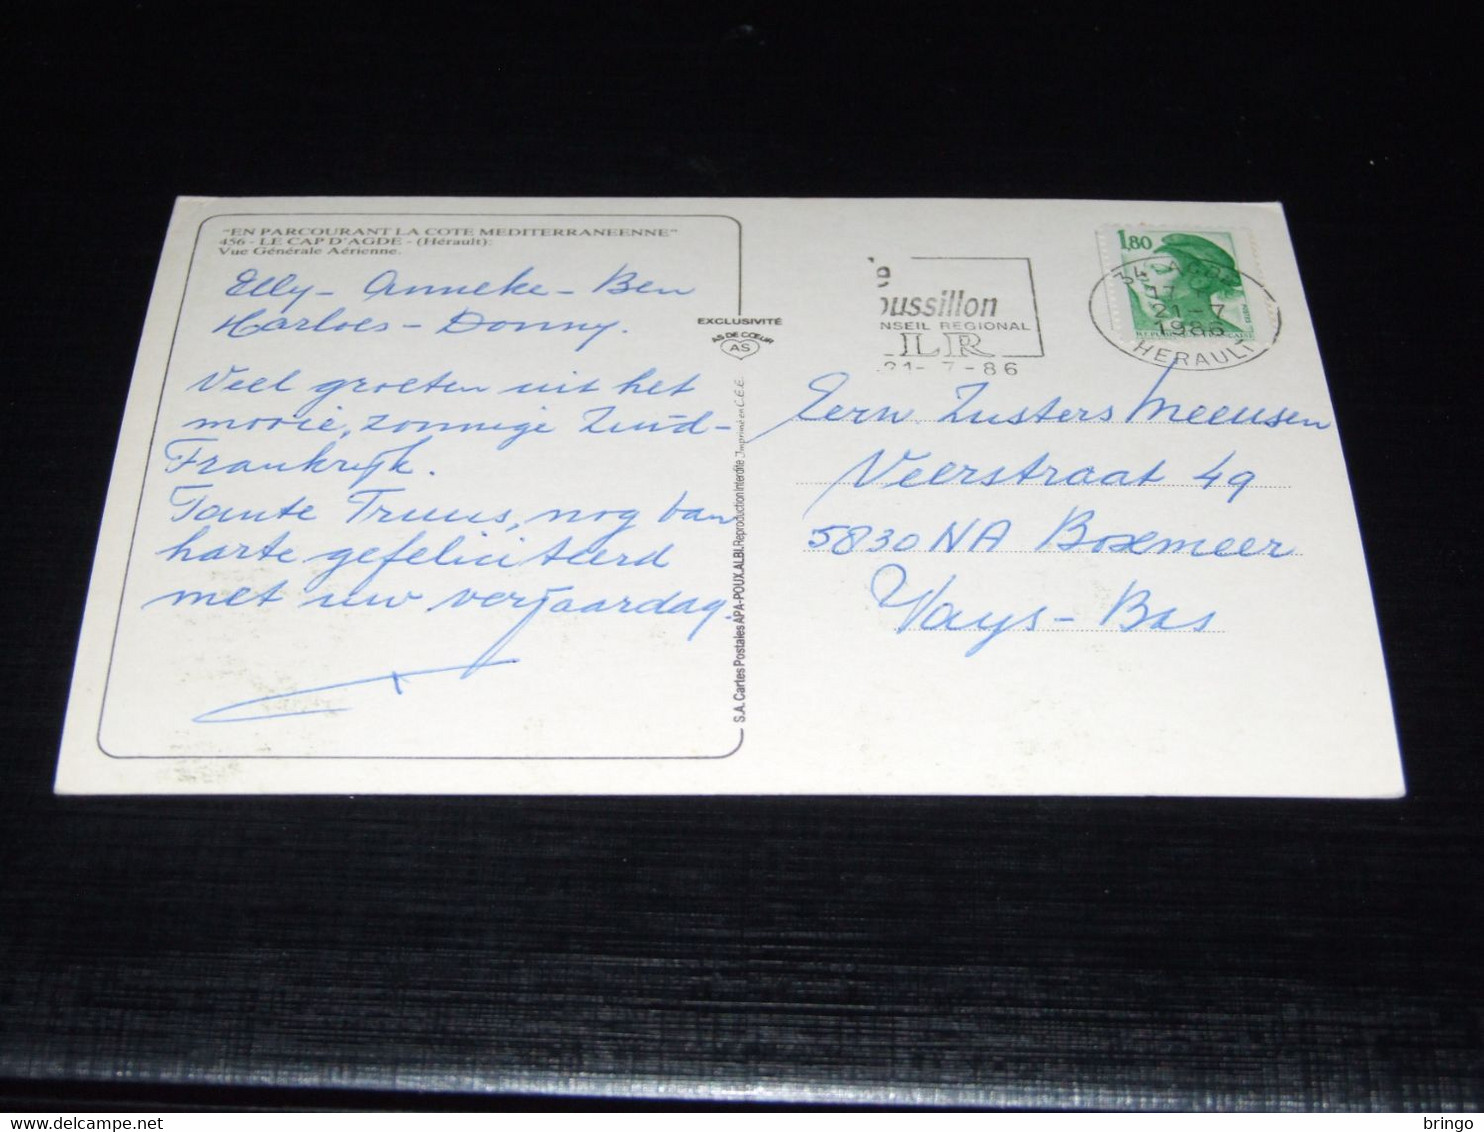 "EN PARCOURANT LA COTE MEDITERRANEENNE"
456 - LE CAP D'AGDE - (Hérault):
Vue Générale Aérienne.
Elly - Anneke - Ben
Marloes - Donny.
Veel groeten uit het
mooie, zonnige Zuid-
Frankrijk.
Tante Truus, nog van
harte gefeliciteerd
met uw verjaardag.
EXCLUSIVITÉ
AS DE CŒUR
AS
S.A. Cartes Postales APA-POUX.ALBI. Reproduction interdite Imprimé en C.E.E.
oussillon
NSEIL REGIONAL
LR
21-7-86
1,80
34 AGDE
17
21-7
1986
HERAULT
Eerw. Zusters Meeusen
Veerstraat 49
5830 NA Boxmeer
Pays-Bas
bringo